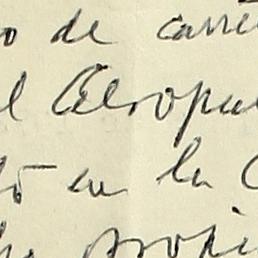 o de carre
l Aeropue
tó en la C
propi